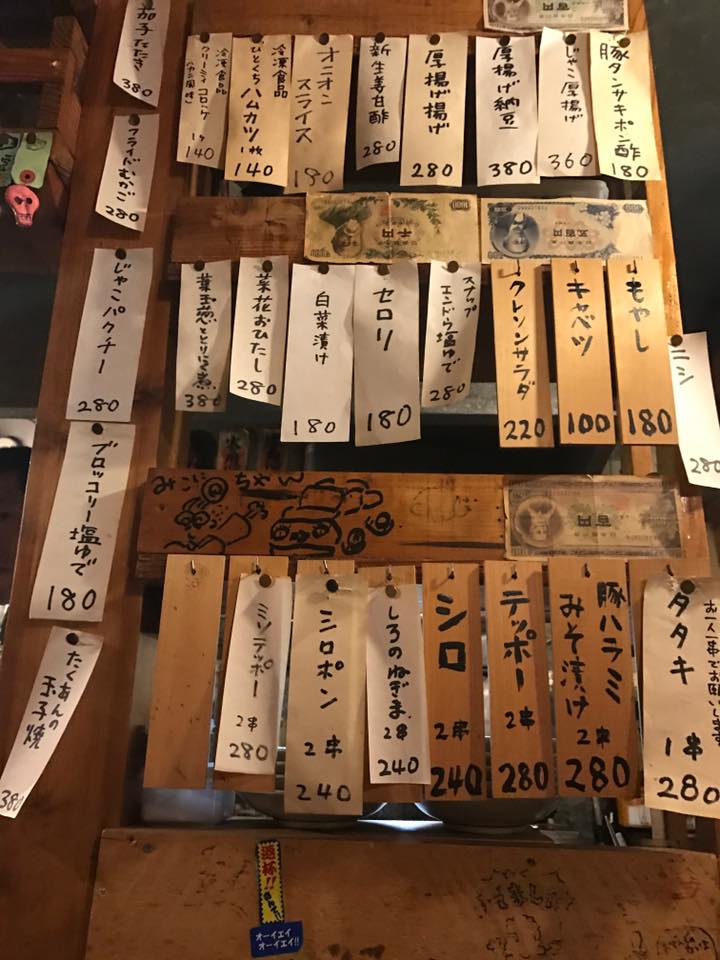 豚タンサキポン酢
180
じゃこ厚揚げ
360
厚揚げ納豆
380
厚揚げ揚げ
280
新生姜甘酢
280
オニオン
スライス
180
冷凍食品
ひとくちハムカツ 1枚
140
冷凍食品
クリーミィコロッケ
1ケ
140
茄子たたき
380
フライドむかご
280
千円
五百円
ニシ
280
もやし
180
キャベツ
100
クレソンサラダ
220
スナップ
エンドウ塩ゆで
280
セロリ
180
白菜漬け
180
菜花おひたし
280
葉玉葱ととりにく煮
380
じゃこパクチー
280
ブロッコリー塩ゆで
180
みこにいちゃん
百円
お一人一串でお願いします
タタキ
1串
280
豚ハラミ
みそ漬け
2串
280
テッポー
2串
280
シロ
2串
240
しろのねぎま
2串
240
シロポン
2串
240
ミソテッポー
2串
280
たくあんの
玉子焼
380
オーイエイ
オーイエイ!!